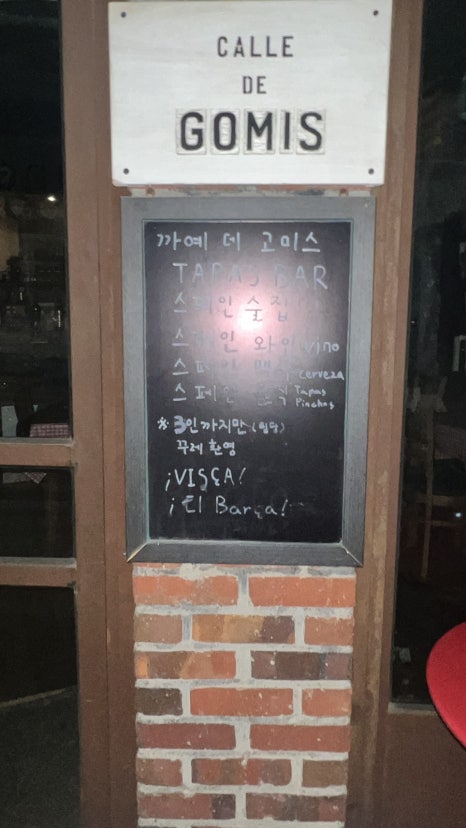 CALLE
DE
GOMIS
까예 데 고미스
TAPAS BAR
스페인 술집
스페인 와인 vino
스페인 맥주 cerveza
스페인 음식 Tapas
Pinchos
※ 3인까지만
꾸레 환영
¡VISCA!
¡El Barça!